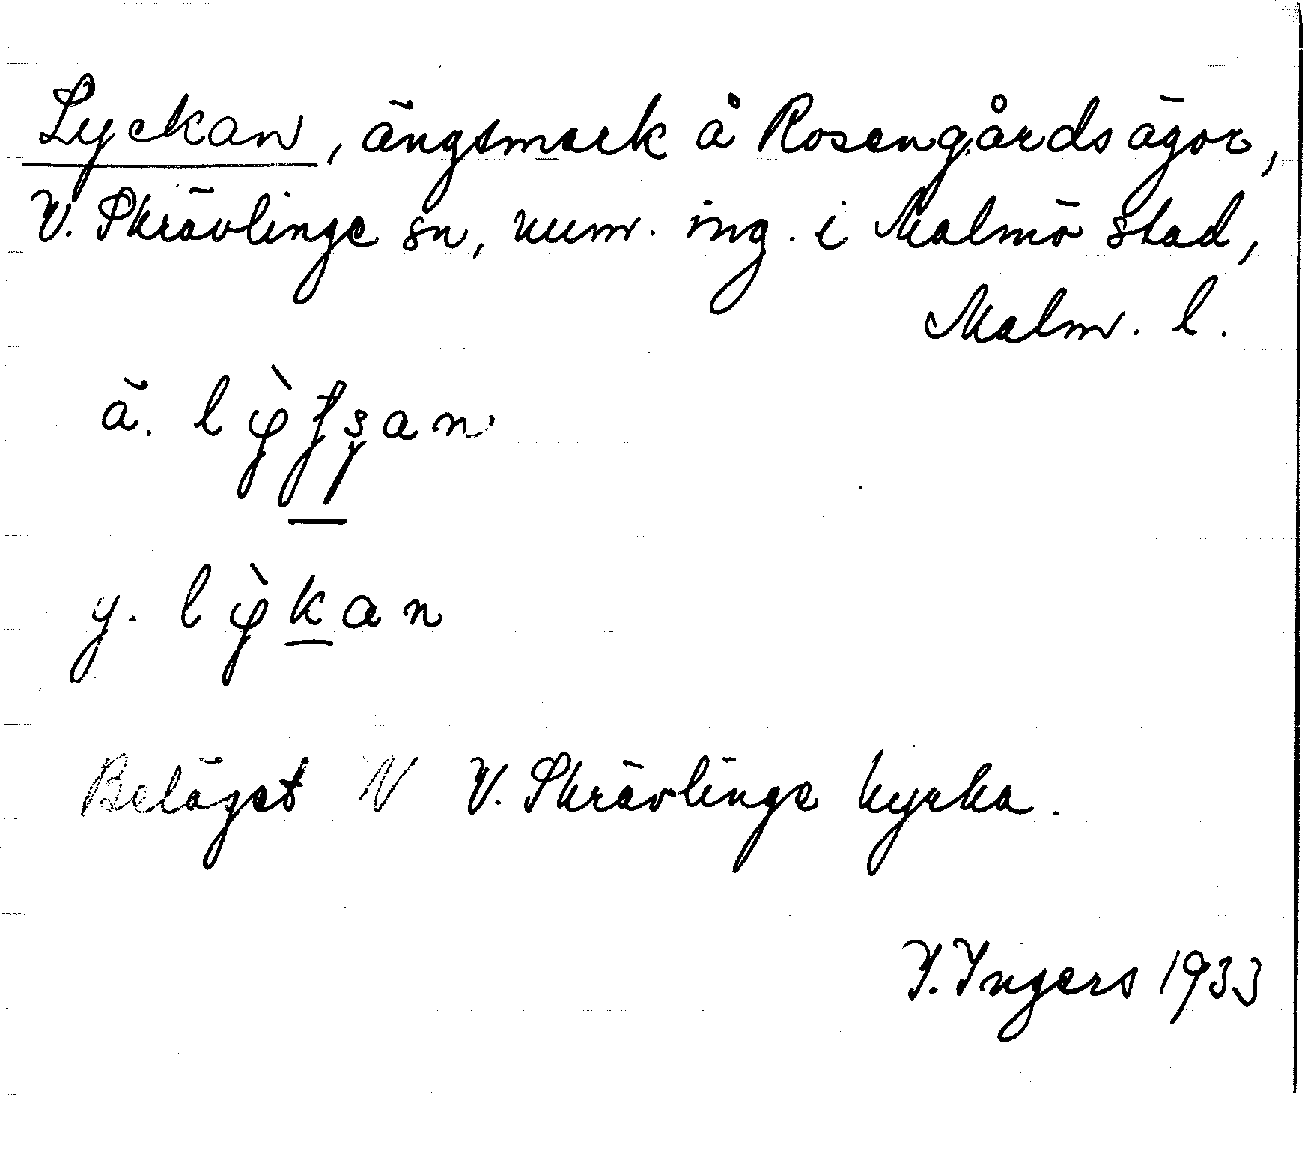 Lyckan, ängsmark å Rosengårds ägor,
V. Skrävlinge sn, num. ing. i Malmö stad,
Malm. l.
ä.
y. lỳkan
Beläget N V. Skrävlinge kyrka.
I. Ingers 1933